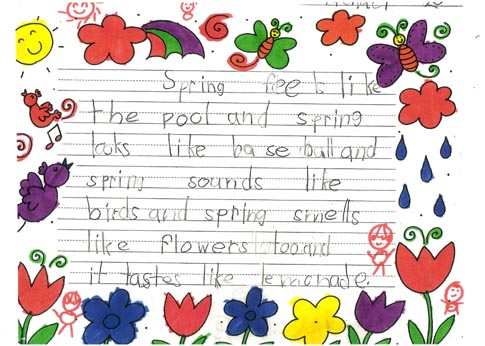 Spring feels like
the pool and spring
looks like base ball and
spring sounds like
birds and spring smells
like flowers and
it tastes like lemonade.